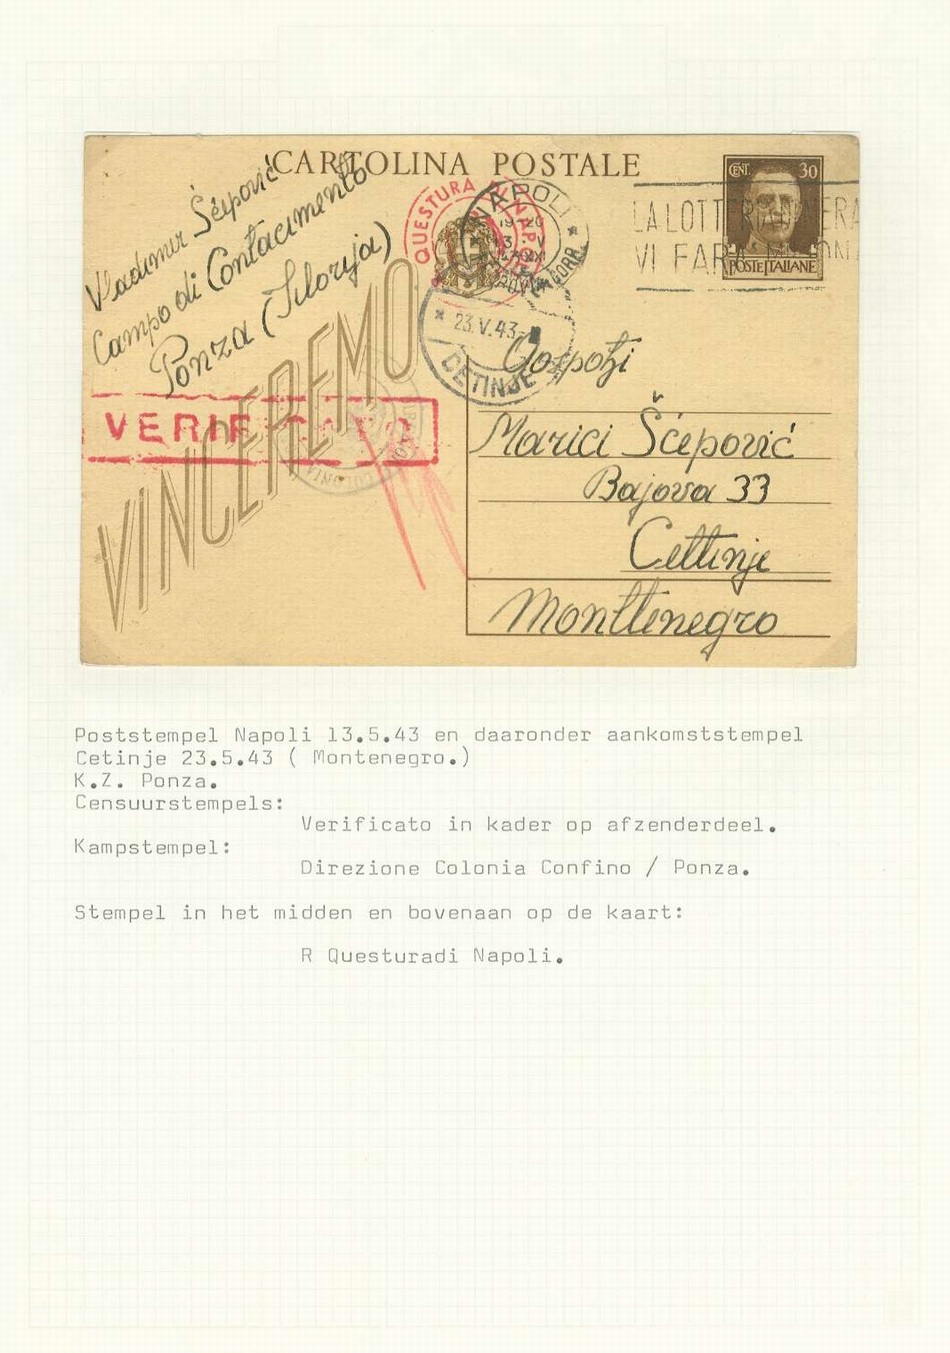 CARTOLINA POSTALE
CENT. 30
POSTE ITALIANE
Vladimir Šćepović
Campo di
Ponza
QUESTURA DI NAPOLI
NAPOLI
19-20
LA LOTTERIA
VI FARÀ
23.V.43
CETINJE
VERIFICATO
VINCEREMO
COLONIA
Gospođi
Marici Šćepović
Bajova 33
Cettinje
Monttenegro
Poststempel Napoli 13.5.43 en daaronder aankomststempel
Cetinje 23.5.43 ( Montenegro.)
K.Z. Ponza.
Censuurstempels:
Verificato in kader op afzenderdeel.
Kampstempel:
Direzione Colonia Confino / Ponza.
Stempel in het midden en bovenaan op de kaart:
R Questuradi Napoli.